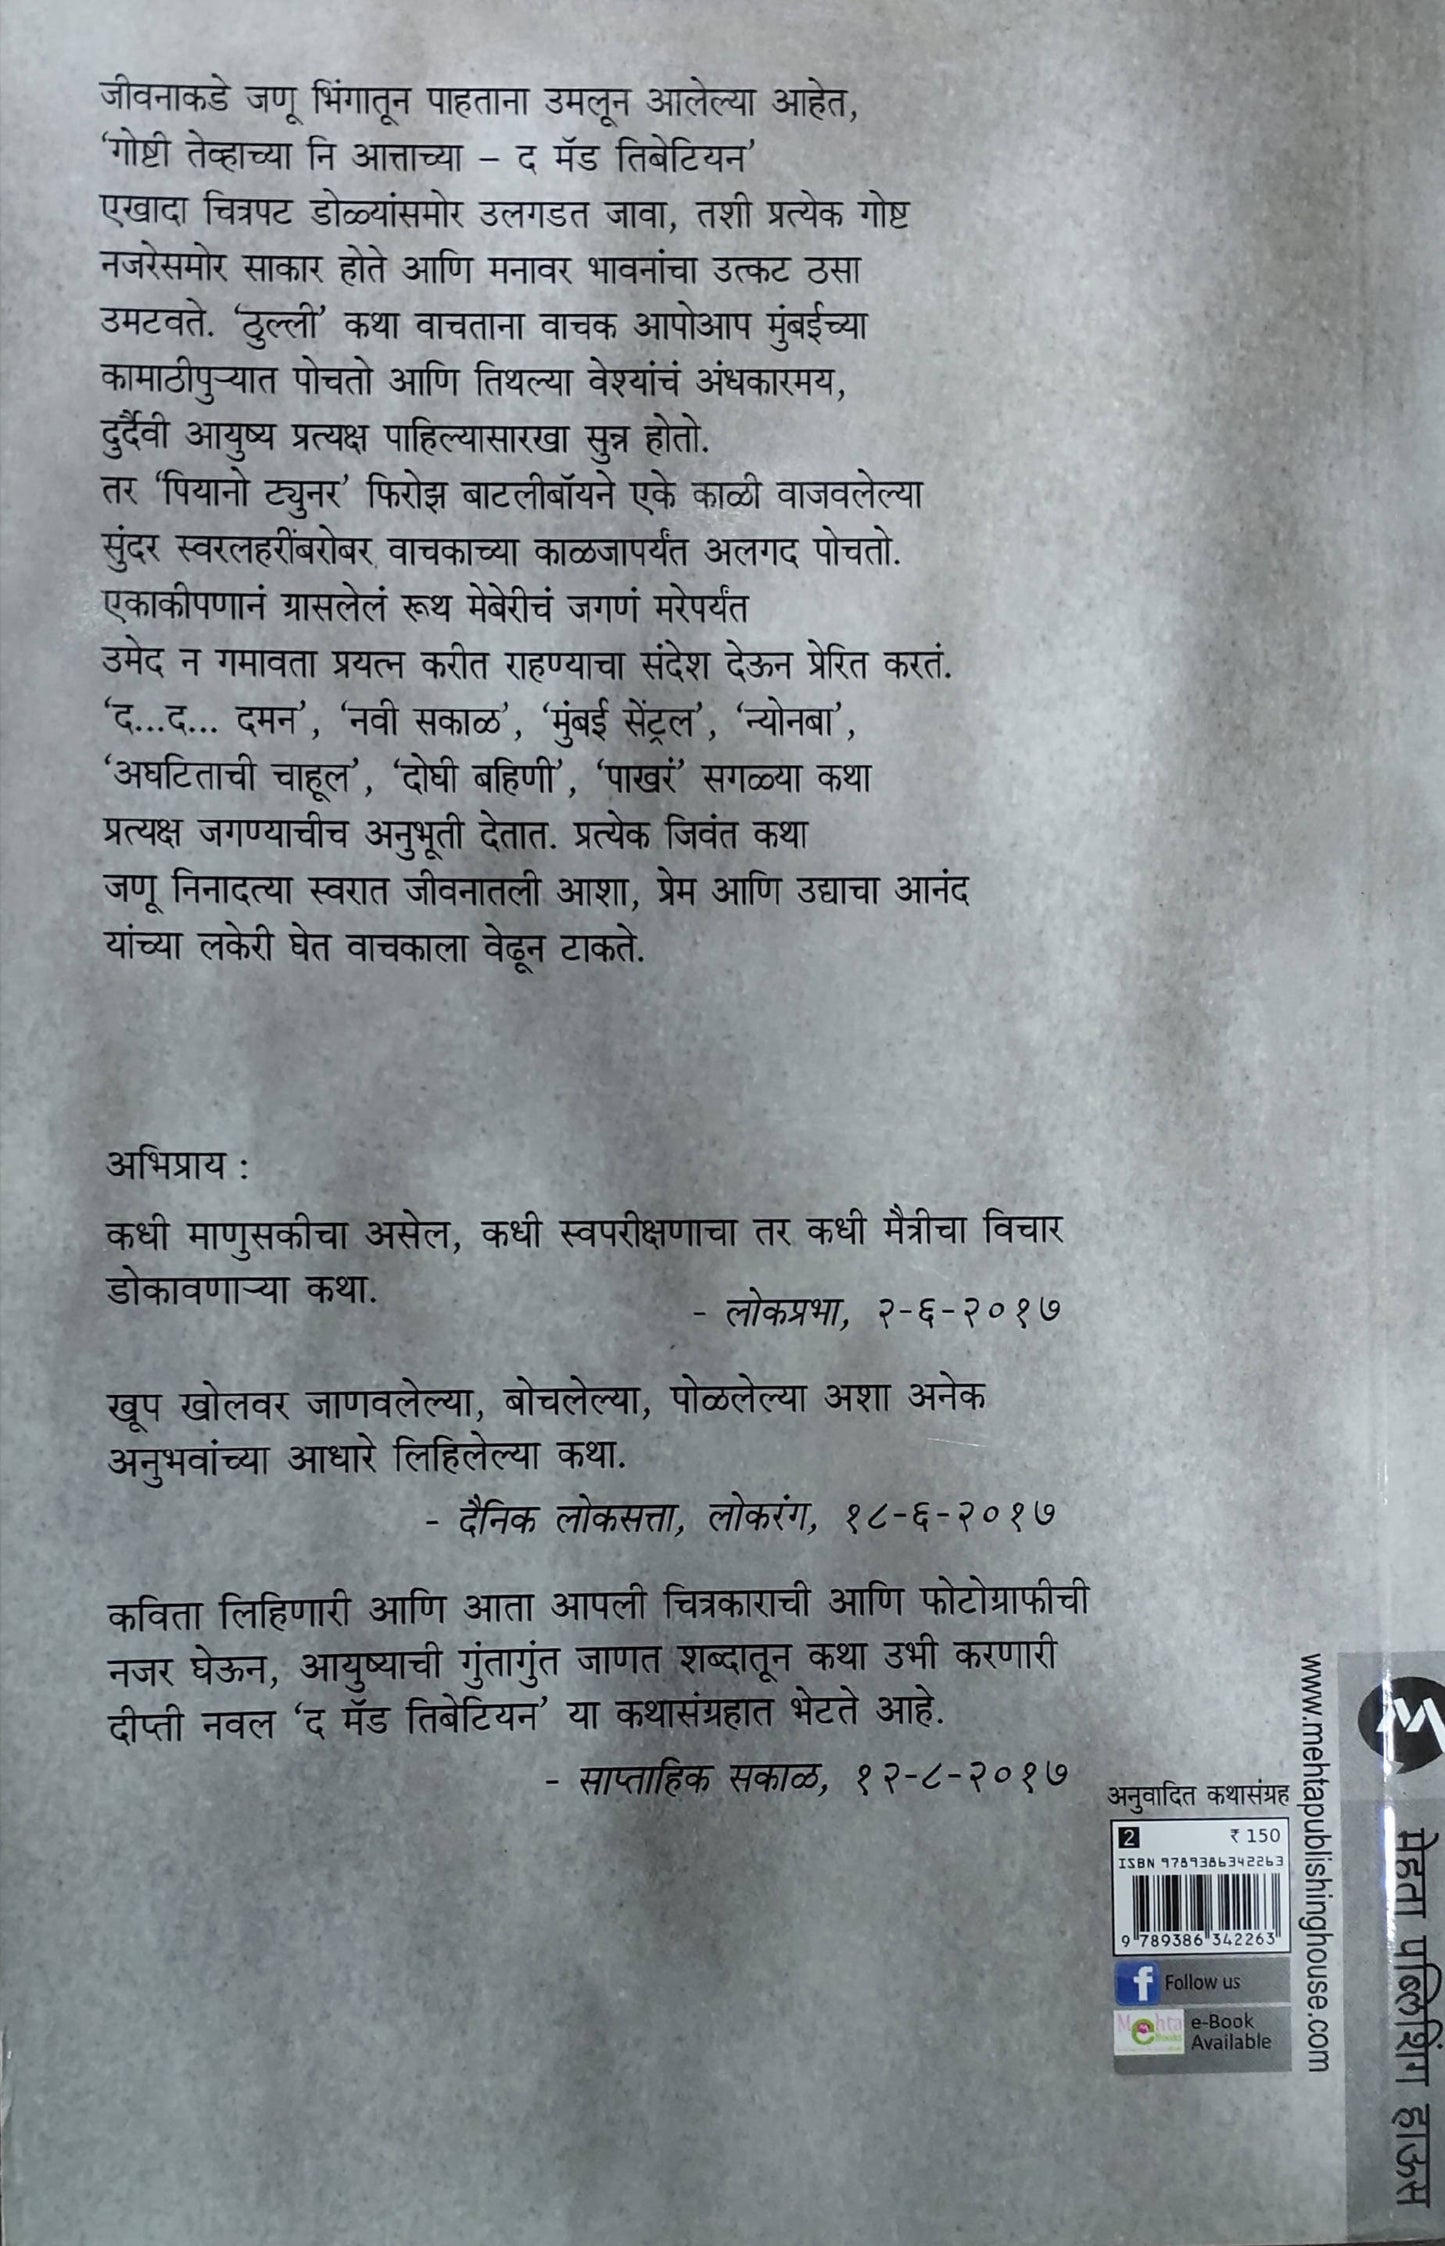 जीवनाकडे जणू भिंगातून पाहताना उमलून आलेल्या आहेत,
‘गोष्टी तेव्हाच्या नि आत्ताच्या – द मॅड तिबेटियन’
एखादा चित्रपट डोळ्यांसमोर उलगडत जावा, तशी प्रत्येक गोष्ट
नजरेसमोर साकार होते आणि मनावर भावनांचा उत्कट ठसा
उमटवते. ‘ठुल्ली’ कथा वाचताना वाचक आपोआप मुंबईच्या
कामाठीपुऱ्यात पोचतो आणि तिथल्या वेश्यांचं अंधकारमय,
दुर्दैवी आयुष्य प्रत्यक्ष पाहिल्यासारखा सुन्न होतो.
तर ‘पियानो ट्युनर’ फिरोझ बाटलीबॉयने एके काळी वाजवलेल्या
सुंदर स्वरलहरींबरोबर वाचकाच्या काळजापर्यंत अलगद पोचतो.
एकाकीपणानं ग्रासलेलं रूथ मेबेरीचं जगणं मरेपर्यंत
उमेद न गमावता प्रयत्न करीत राहण्याचा संदेश देऊन प्रेरित करतं.
‘द...द... दमन’, ‘नवी सकाळ’, ‘मुंबई सेंट्रल’, ‘न्योनबा’,
‘अघटिताची चाहूल’, ‘दोघी बहिणी’, ‘पाखरं’ सगळ्या कथा
प्रत्यक्ष जगण्याचीच अनुभूती देतात. प्रत्येक जिवंत कथा
जणू निनादत्या स्वरात जीवनातली आशा, प्रेम आणि उद्याचा आनंद
यांच्या लकेरी घेत वाचकाला वेढून टाकते.
अभिप्राय :
कधी माणुसकीचा असेल, कधी स्वपरीक्षणाचा तर कधी मैत्रीचा विचार
डोकावणाऱ्या कथा.
- लोकप्रभा, २-६-२०१७
खूप खोलवर जाणवलेल्या, बोचलेल्या, पोळलेल्या अशा अनेक
अनुभवांच्या आधारे लिहिलेल्या कथा.
- दैनिक लोकसत्ता, लोकरंग, १८-६-२०१७
कविता लिहिणारी आणि आता आपली चित्रकाराची आणि फोटोग्राफीची
नजर घेऊन, आयुष्याची गुंतागुंत जाणत शब्दातून कथा उभी करणारी
दीप्ती नवल ‘द मॅड तिबेटियन’ या कथासंग्रहात भेटते आहे.
- साप्ताहिक सकाळ, १२-८-२०१७
अनुवादित कथासंग्रह
2 ₹ 150
ISBN 9789386342263
9 789386 342263
f Follow us
Mehta
e-Book
Available
www.mehtapublishinghouse.com
मेहता पब्लिशिंग हाऊस